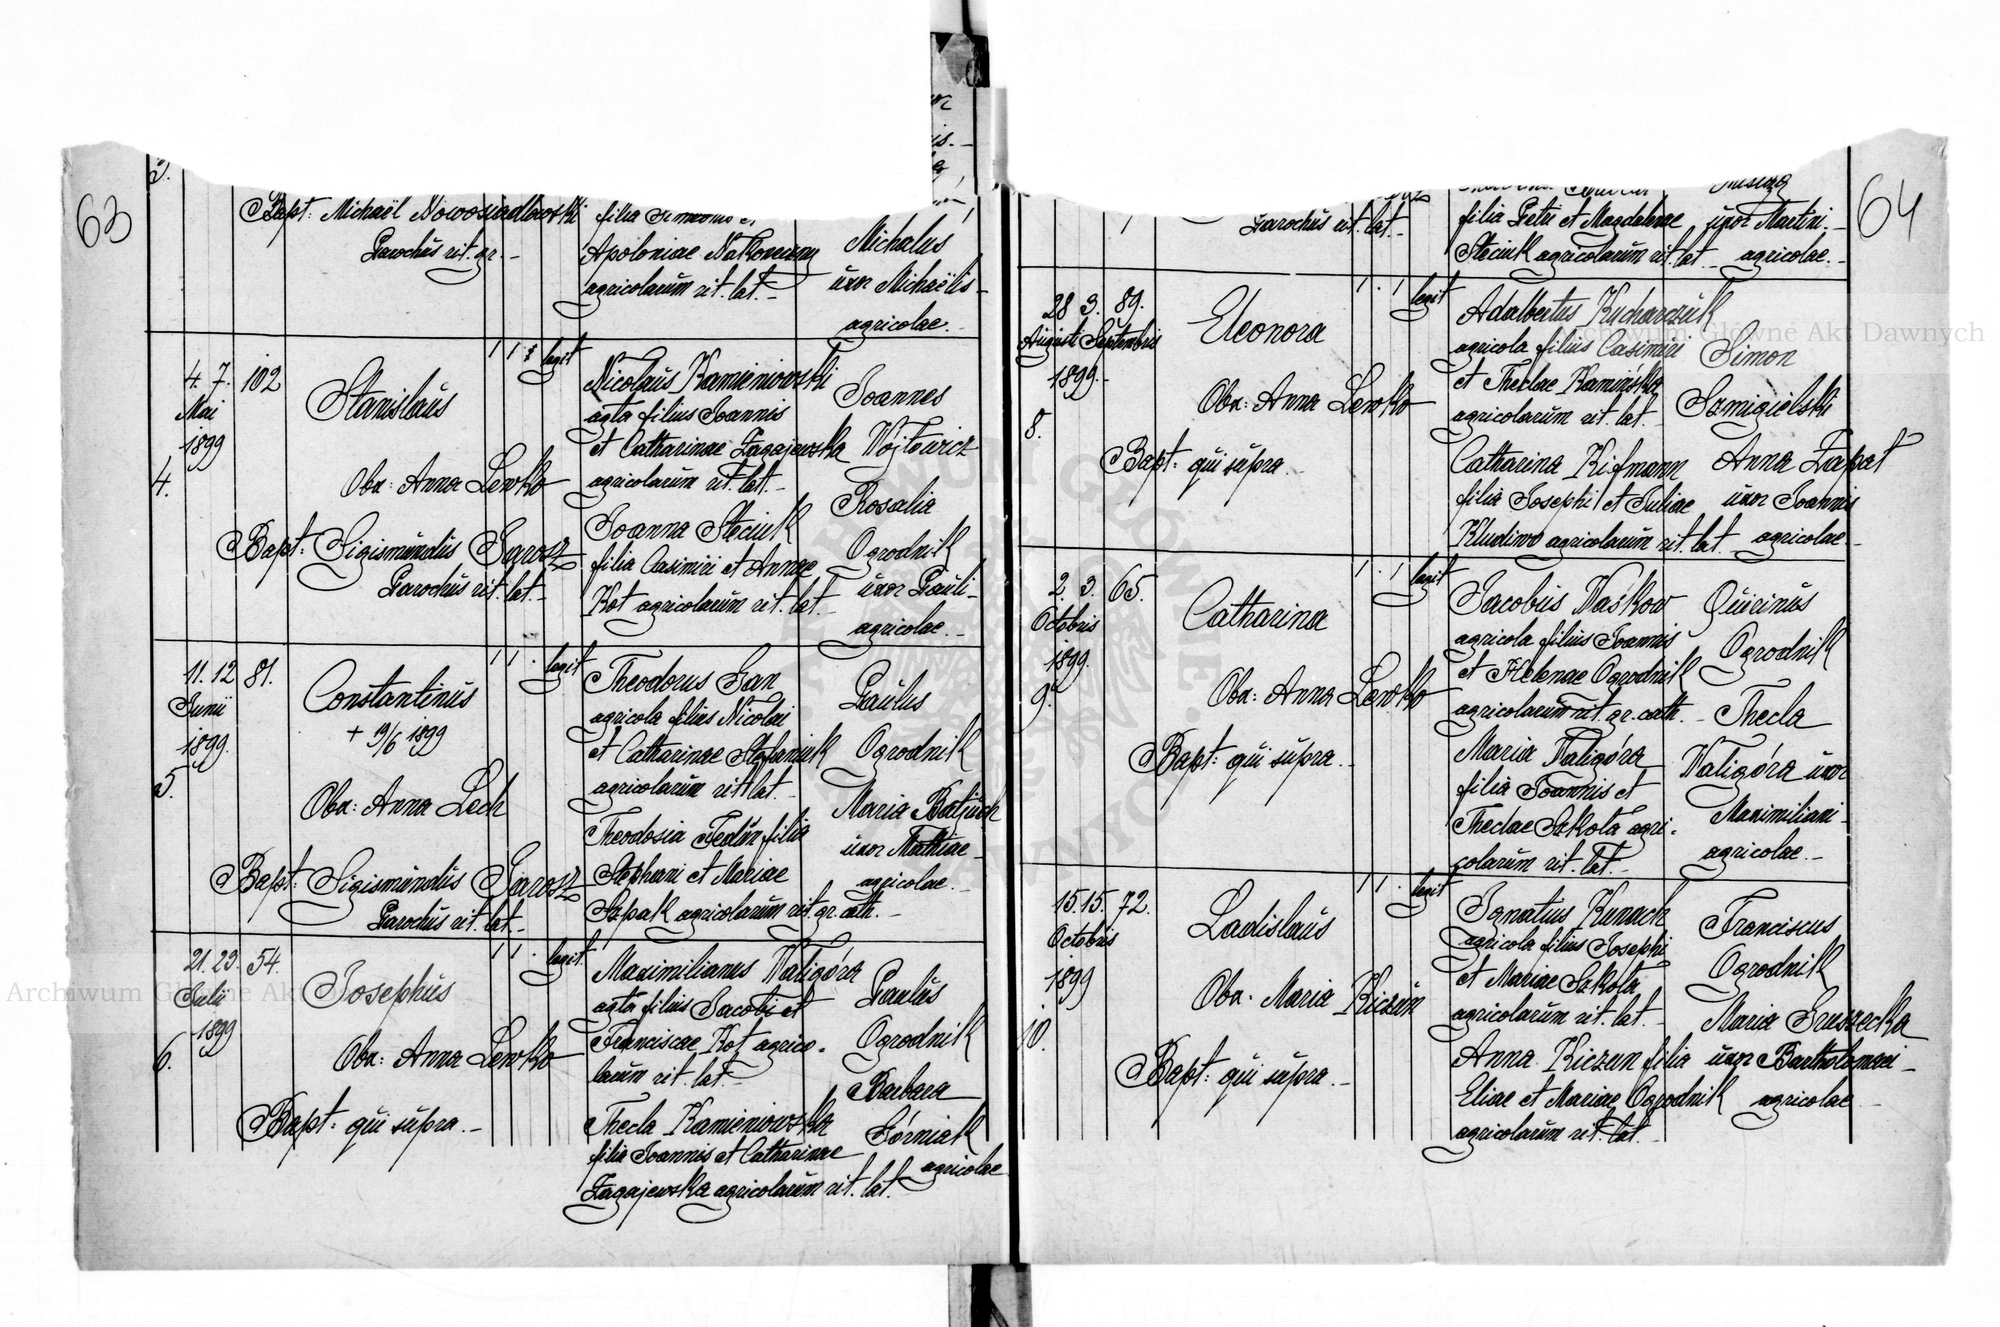 63
Bapt: Michaël Nowosiadlowski
Parochus rit. gr. -
filia
Apoloniae
agricolarum rit. lat. -
Michalus
uxor Michaëlis -
agricolae. -
4. 7. 102
Mai
1899
4.
Stanislaus
Obx: Anna Lewko
Bapt: Sigismundus Jarosz
Parochus rit. lat. -
1 1 legit
Nicolaus Kamieniowski
agta filius Joannis
et Catharinae Zagajewska
agricolarum rit. lat. -
Joanna Steciuk
filia Casimiri et Annae
Kot agricolarum rit. lat. -
Joannes
Wojtowicz
Rosalia
Ogrodnik
uxor Pauli -
agricolae. -
11. 12 81.
Junii
1899.
5.
Constantinus
+ 19/6 1899
Obx: Anna Lech
Bapt: Sigismundus Jarosz
Parochus rit. lat. -
1 1 . legit
Theodorus Pan
agricola filius Nicolai
et Catharinae Stefaniuk
agricolarum rit lat. -
Theodosia Fedun filia
Stephani et Mariae
Szpak agricolarum rit. gr. cath. -
Paulus
Ogrodnik
Maria
uxor Mathiae -
agricolae. -
21. 23. 54.
Julii
1899
6.
Josephus
Obx: Anna Lewko
Bapt: qui supra. -
1 1 . legit
Maximilianus Waligóra
agta filius Jacobi et
Franciscae Kot agrico-
larum rit. lat. -
Thecla Kamieniowska
filia Joannis et Catharinae
Zagajewska agricolarum rit. lat. -
Paulus
Ogrodnik
Barbara
Górniak
agricolae
64
Parochus rit. lat. -
filia Petri et Magdalenae
Steciuk agricolarum rit. lat. -
uxor Martini. -
agricolae. -
28 3. 89.
Augusti Septembris
1899. -
8.
Eleonora
Obx: Anna Lewko
Bapt: qui supra. -
1 . 1 legit
Adalbertus Kucharczuk
agricola filius Casimiri
et Theclae Kamińska
agricolarum rit. lat. -
Catharina Kifmann
filia Josephi et Juliae
agricolarum rit. lat. -
Simon
Szmigielski
Anna Zapat
uxor Joannis
agricolae -
2. 3. 65.
Octobris
1899.
9.
Catharina
Obx: Anna Lewko
Bapt: qui supra. -
1 . 1 legit
Jacobus Waśkow
agricola filius Joannis
et Helenae Ogrodnik
agricolarum rit. gr. cath. -
Maria Waligóra
filia Joannis et
Theclae Szkoła agri-
colarum rit. lat. -
Quirinus
Ogrodnik
Thecla
Waligóra uxor
Maximiliani -
agricolae. -
15. 15. 72.
Octobris
1899
10.
Ladislaus
Obx: Maria Kiczun
Bapt: qui supra. -
1 1 . legit
Ignatius Kunach
agricola filius Josephi
et Mariae Szkoła
agricolarum rit. lat. -
Anna Kiczun filia
Eliae et Mariae Ogrodnik
agricolarum rit. lat. -
Franciscus
Ogrodnik
Maria Gruszecka
uxor Bartholomaei -
agricolae -
Archiwum Główne Akt Dawnych
Archiwum Główne Akt Dawnych